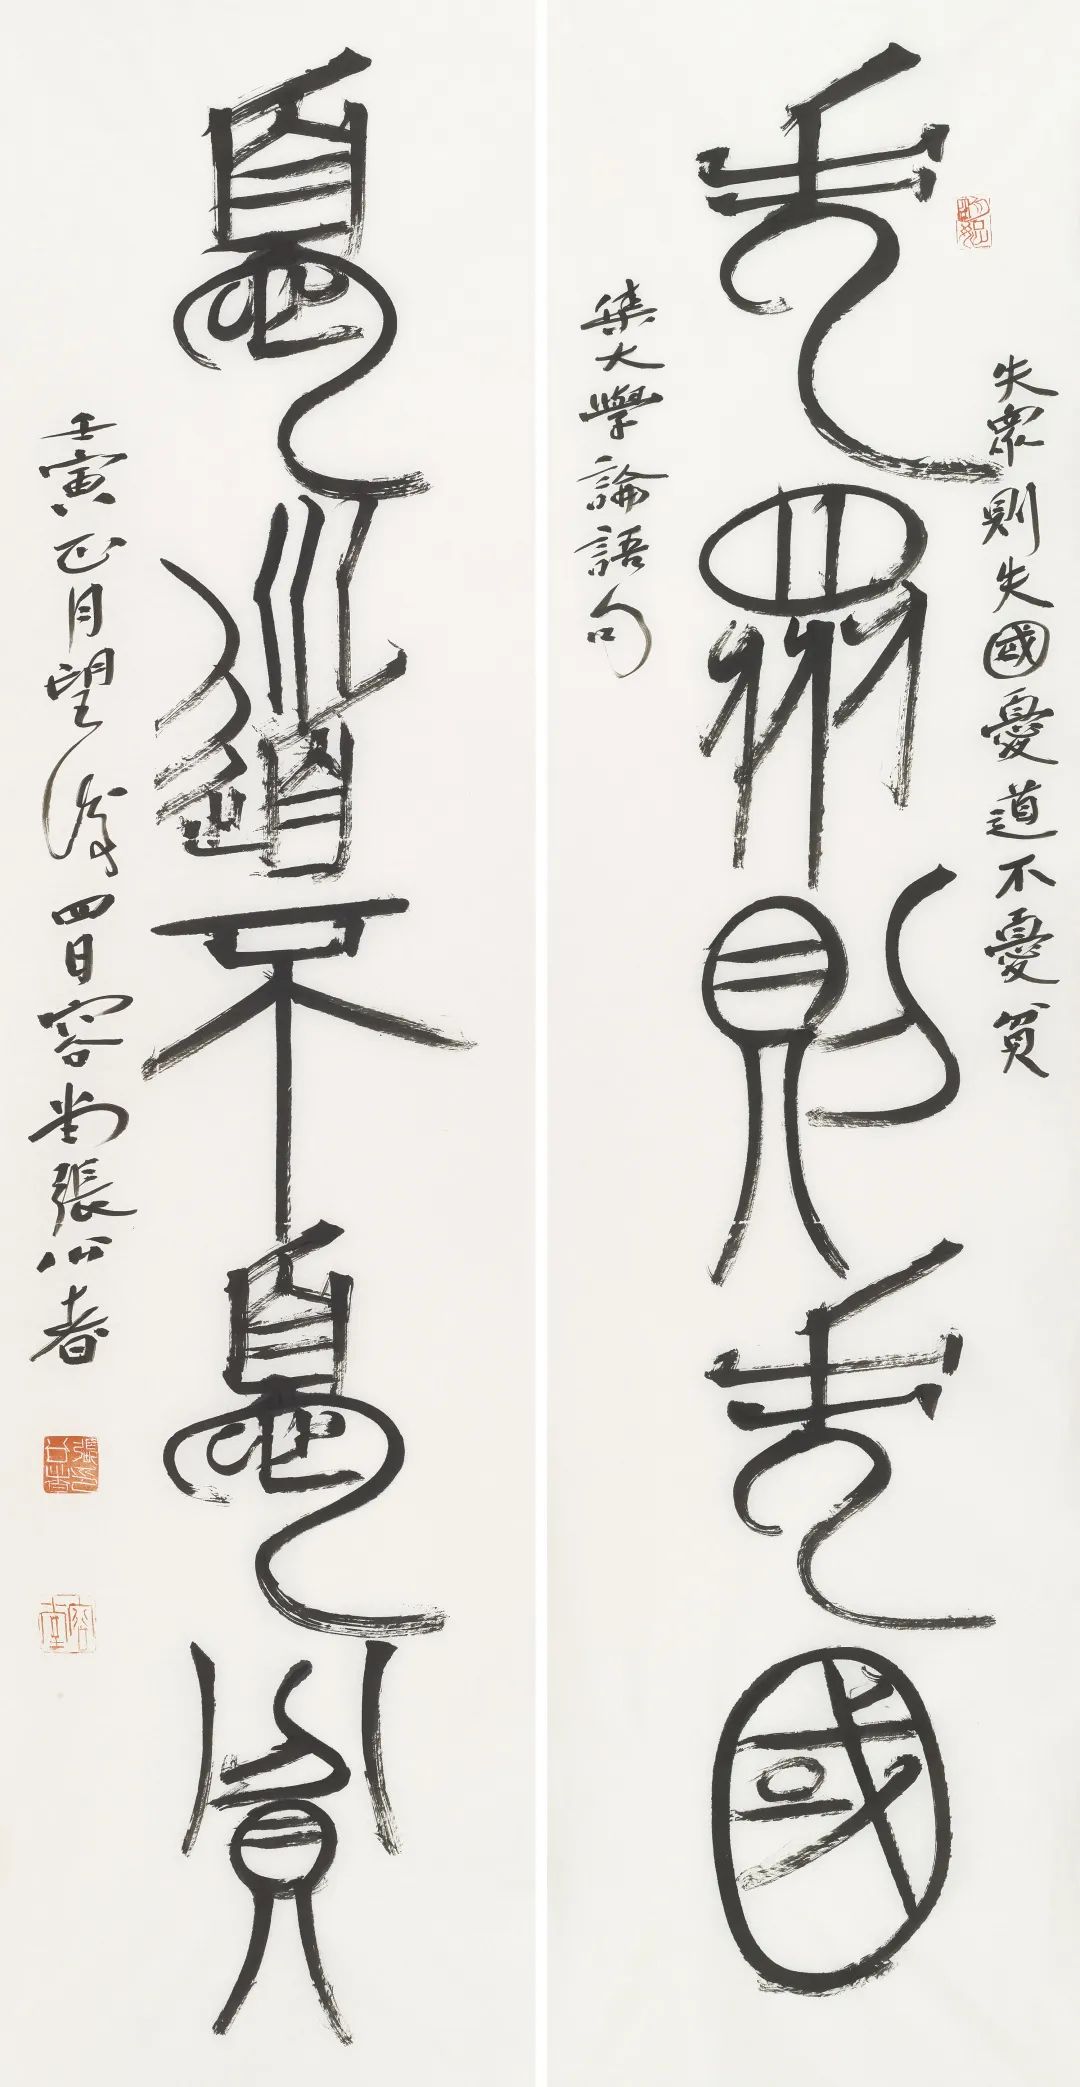 失衆則失國憂道不憂貧
失衆則失國
集大學論語句
憂道不憂貧
壬寅正月望後四日容堂張公者
容堂